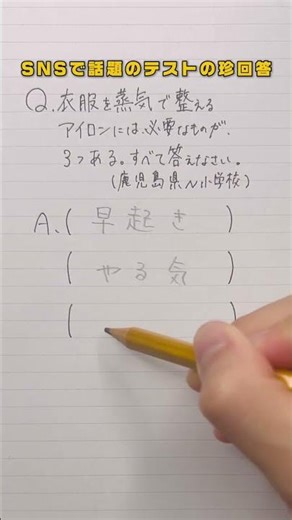 SNSで話題のテストの珍回答
Q.衣服を蒸気で整える
アイロンには、必要なものが、
3つある。すべて答えなさい。
(鹿児島県N小学校)
A.(早起き)
(やる気)
(